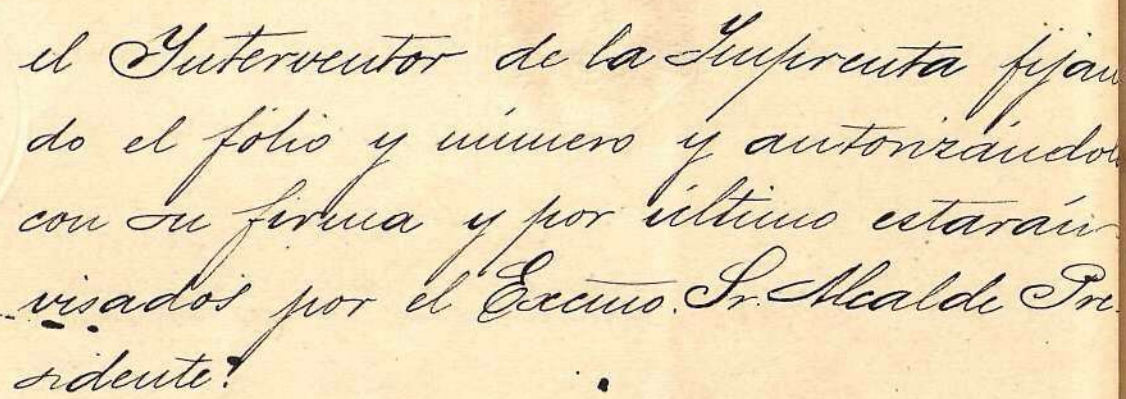 el Interventor de la Imprenta fijan
do el fólio y número y autorizándol
con su firma y por último estarán
visados por el Excmo. Sr. Alcalde Pre-
sidente.